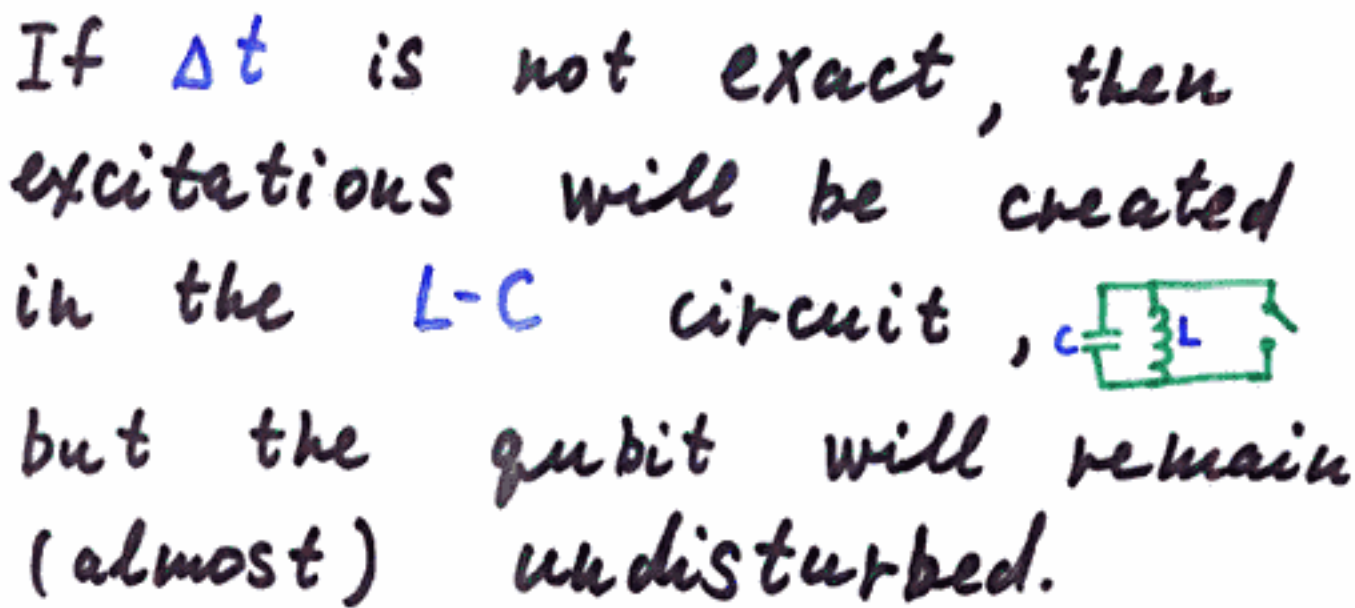 If Δt is not exact, then
excitations will be created
in the L-C circuit, C L
but the qubit will remain
(almost) undisturbed.